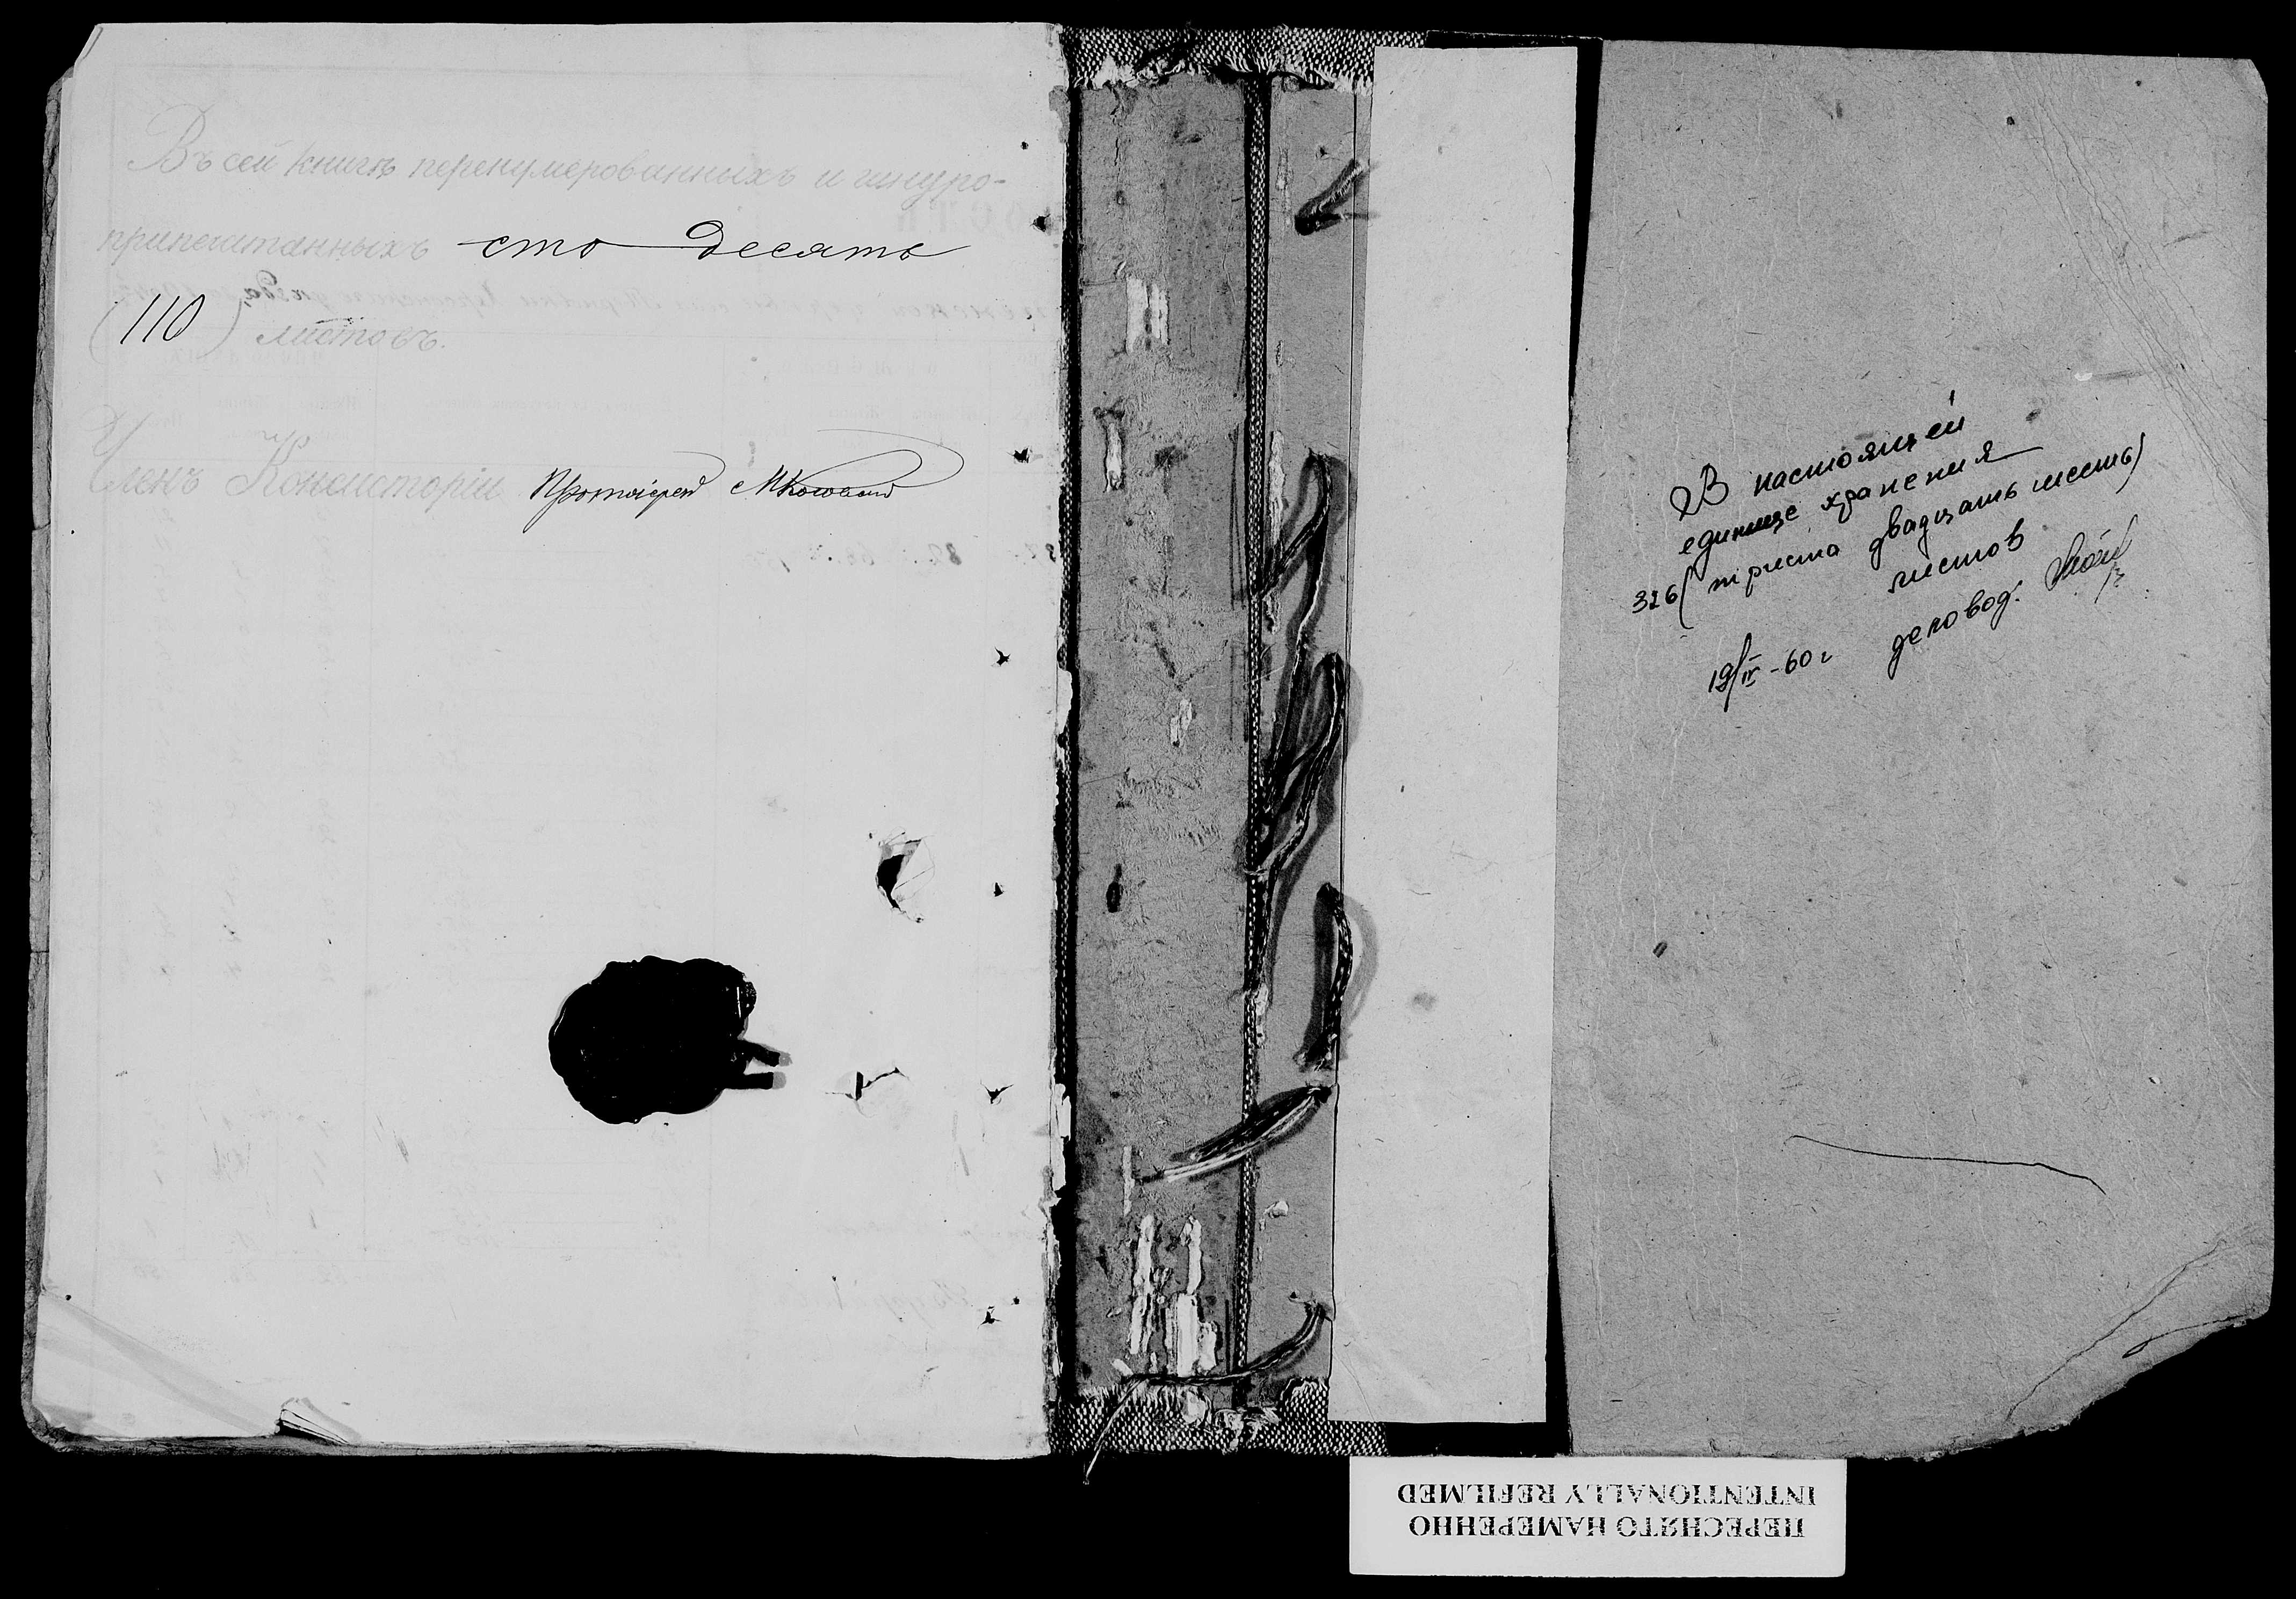 Въ сей книгѣ перенумерованныхъ и шнуро-
припечатанныхъ сто десять
(110) листовъ.
Членъ Консисторіи Протоіерей
В настоящей
единице хранения
326 (триста двадцать шесть)
листов
19/IV-60г деловод.
ПЕРЕСНЯТО НАМЕРЕННО
INTENTIONALLY REFILMED